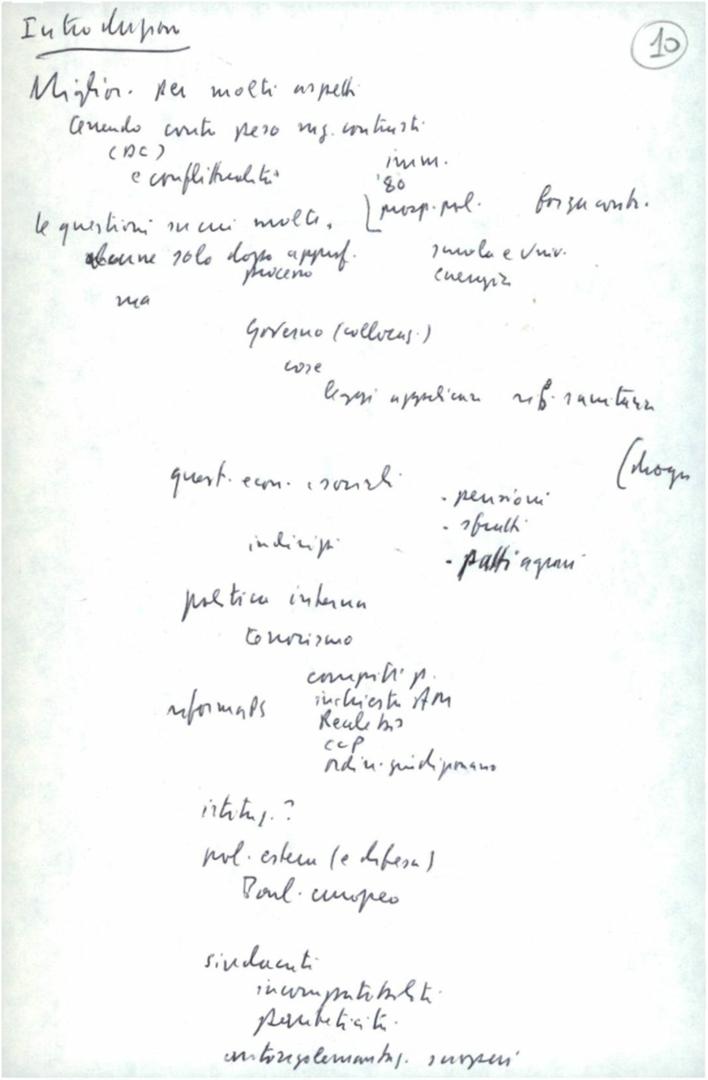 Introduzion
10
Miglior. per molti aspetti
tenendo conto peso mg. contrasti
(DC)
e conflittualità
imm.
'80
prosp. pol.
forza contr.
le questioni su cui molte,
alcune solo dopo appr.
processo
scuola e Univ.
energia
ma
Governo (collocaz.)
cose
leggi applicaz. rif. sanitaria
(droga
quest. econ. e sociali
. pensioni
- sfratti
indirizzi
- patti agrari
politica interna
terrorismo
compiti p.
riforma PS
inchiesta AM
Reale bis
CCP
ordin. giudi penitenziario
istituz. ?
pol. estera (e difesa)
Parl. europeo
sindacati
incompatibilità
pubblicità
autoregolamentaz. scioperi